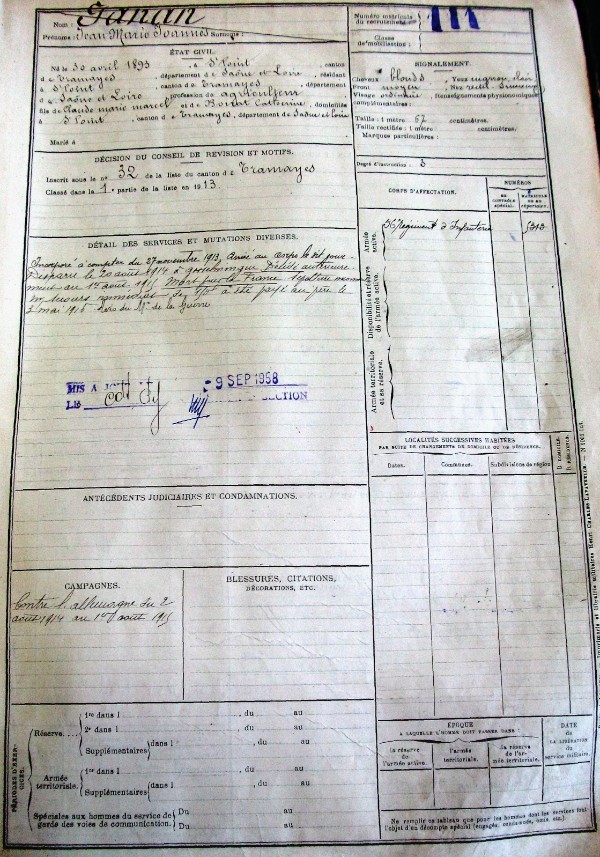 Nom :
Prénoms : Jean Marie Joannès Surnoms :
ÉTAT CIVIL.
Né le 30 avril 1893, à St Point, canton
de Tramayes, département de Saône et Loire, résidant
à St Point, canton de Tramayes, département
de Saône et Loire, profession de agriculteur
fils de Claude marie marcel et de Catherine, domiciliés
à St Point, canton de Tramayes, département de Saône et Loire
Marié à
DÉCISION DU CONSEIL DE REVISION ET MOTIFS.
Inscrit sous le no 32 de la liste du canton de Tramayes
Classé dans la 1e partie de la liste en 1913.
DÉTAIL DES SERVICES ET MUTATIONS DIVERSES.
Incorporé à compter du 27 novembre 1913, Arrivé au corps le dit jour
Disparu le 20 août 1914 à Décédé antérieure-
ment au 1er août 1915 Mort pour la France
secours immédiat de a été payé au père le
2 mai 1916 de la Guerre
MIS A
LE
9 SEP 1958
SECTION
ANTÉCÉDENTS JUDICIAIRES ET CONDAMNATIONS.
CAMPAGNES.
Contre l'allemagne du 2
août 1914 au 1er août 1915
BLESSURES, CITATIONS,
DÉCORATIONS, ETC.
PÉRIODES D'EXERCICES.
Réserve....
1re dans l , du au
2e dans l , du au
Supplémentaires dans l , du au
, du au
Armée
territoriale.
1re dans l , du au
Supplémentaires dans l , du au
, du au
Spéciales aux hommes du service de
garde des voies de communication.
Du au
Du au
Numéro matricule
du recrutement :
111
Classe
de mobilisation :
SIGNALEMENT.
Cheveux blonds, Yeux clair
Front moyen, Nez
Visage ordinaire, Renseignements physionomiques
complémentaires :
Taille : 1 mètre 67 centimètres.
Taille rectifiée : 1 mètre centimètres.
Marques particulières :
Degré d'instruction : 3
CORPS D'AFFECTATION.
NUMÉROS
au
contrôle
spécial.
matricule
ou au
répertoire.
Armée
active.
Régiment d'Infanterie
Disponibilité et réserve
de l'armée active.
Armée territoriale
et sa réserve.
LOCALITÉS SUCCESSIVES HABITÉES
PAR SUITE DE CHANGEMENTS DE DOMICILE OU DE RÉSIDENCE.
Dates.
Communes.
Subdivisions de région.
D. DOMICILE.
R. RÉSIDENCE.
ÉPOQUE
A LAQUELLE L'HOMME DOIT PASSER DANS :
la réserve
de
l'armée active.
l'armée
territoriale.
la réserve
de l'ar-
mée territoriale.
DATE
de
LA LIBÉRATION
du
service militaire.
Ne remplir ce tableau que pour les hommes dont les services font
l'objet d'un décompte spécial (engagés, condamnés, omis, etc.)
Imprimerie et librairie militaires Henri CHARLES-LAVAUZELLE.